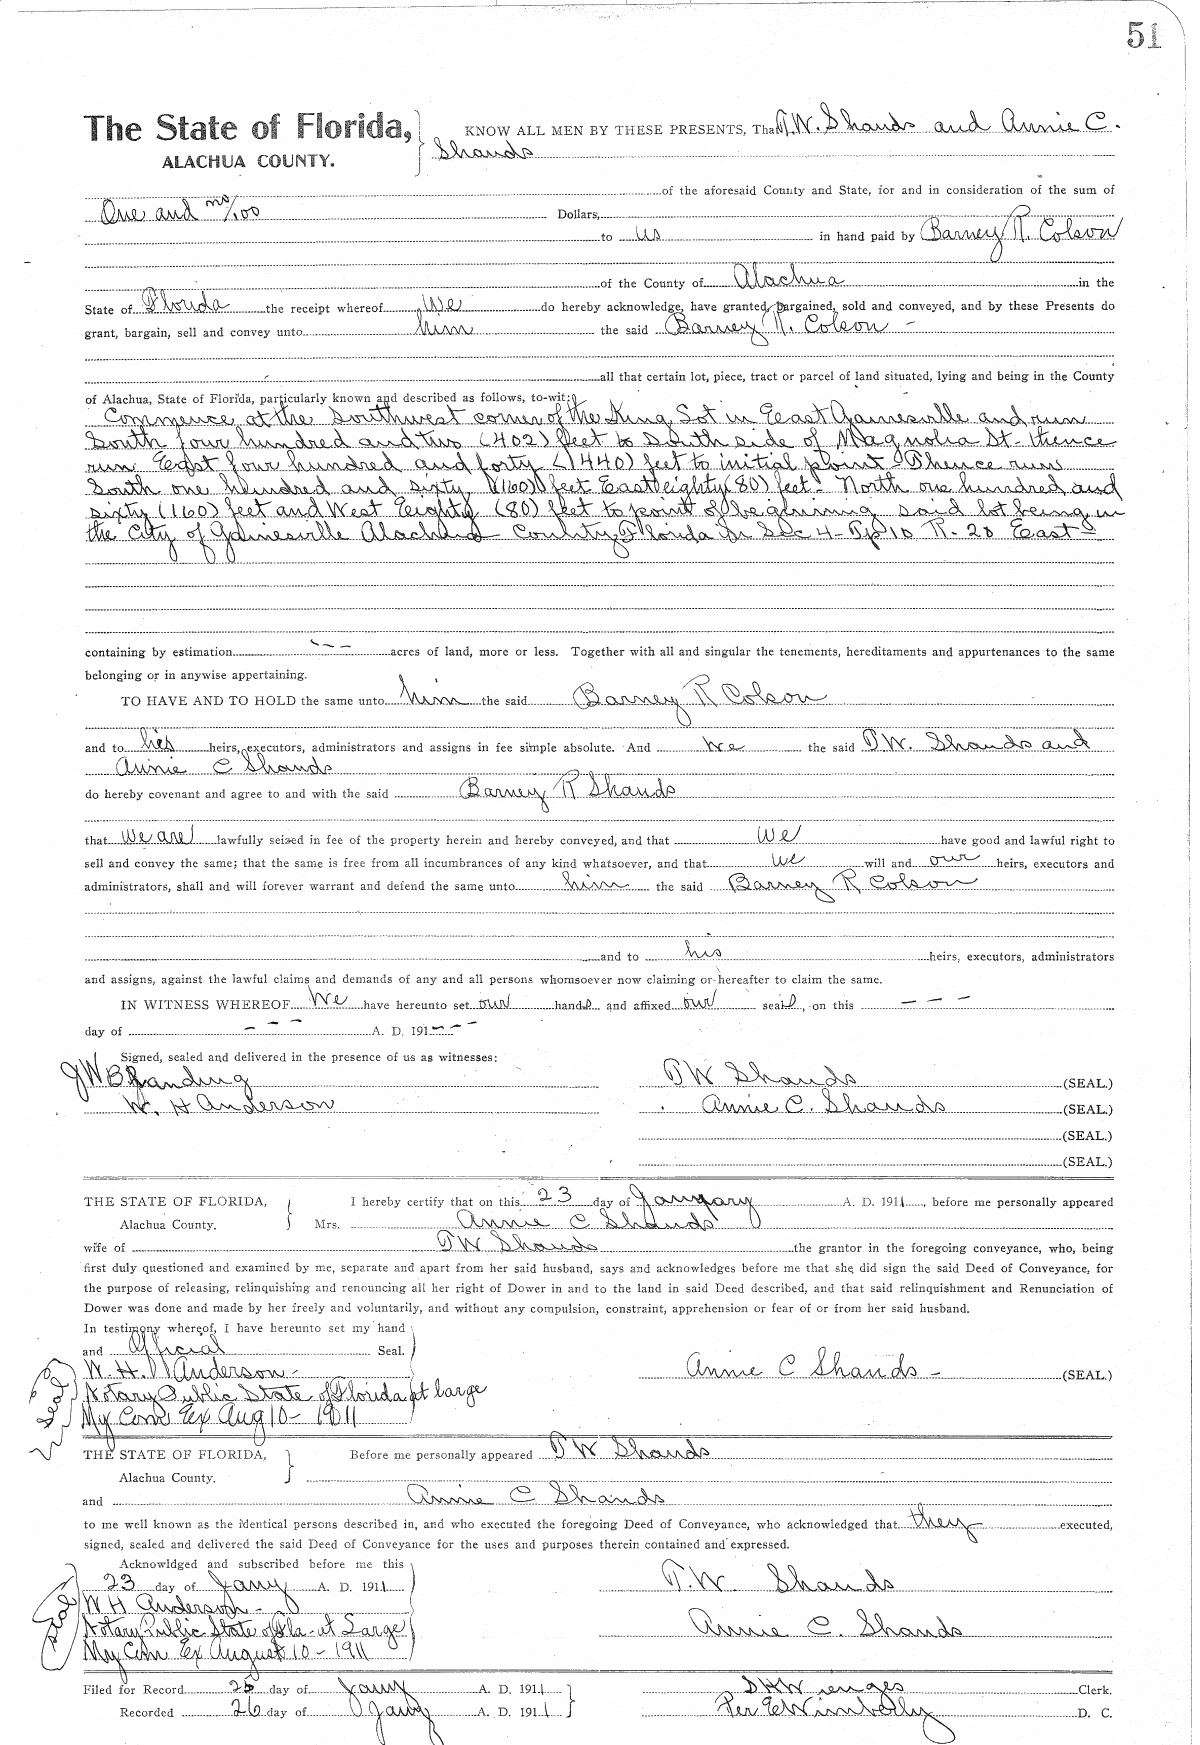 51
The State of Florida, KNOW ALL MEN BY THESE PRESENTS, That T.W. Shands and Annie C.
ALACHUA COUNTY. Shands
of the aforesaid County and State, for and in consideration of the sum of
One and no/100 Dollars,
to us in hand paid by Barney R. Colson
of the County of Alachua in the
State of Florida the receipt whereof We do hereby acknowledge, have granted, bargained, sold and conveyed, and by these Presents do
grant, bargain, sell and convey unto him the said Barney R. Colson -
all that certain lot, piece, tract or parcel of land situated, lying and being in the County
of Alachua, State of Florida, particularly known and described as follows, to-wit:
Commence at the Southwest corner of the King Lot in East Gainesville and run
South four hundred and two (402) feet to South side of Magnolia St- thence
run East four hundred and forty (440) feet to initial point - Thence run
South one hundred and sixty (160) feet East eighty (80) feet- North one hundred and
sixty (160) feet and West Eighty (80) feet to point of beginning said lot being in
the City of Gainesville Alachua County Florida in Sec 4- Tp 10 R. 20 East-
containing by estimation --- acres of land, more or less. Together with all and singular the tenements, hereditaments and appurtenances to the same
belonging or in anywise appertaining.
TO HAVE AND TO HOLD the same unto him the said Barney R Colson
and to his heirs, executors, administrators and assigns in fee simple absolute. And we the said T.W. Shands and
Annie C Shands
do hereby covenant and agree to and with the said Barney R Shands
that we are lawfully seized in fee of the property herein and hereby conveyed, and that we have good and lawful right to
sell and convey the same; that the same is free from all incumbrances of any kind whatsoever, and that we will and our heirs, executors and
administrators, shall and will forever warrant and defend the same unto him the said Barney R Colson
and to his heirs, executors, administrators
and assigns, against the lawful claims and demands of any and all persons whomsoever now claiming or hereafter to claim the same.
IN WITNESS WHEREOF We have hereunto set our hands and affixed our seals, on this - - -
day of - - - A. D. 191- - -
Signed, sealed and delivered in the presence of us as witnesses:
TW Shands (SEAL.)
W. H Anderson Annie C. Shands (SEAL.)
(SEAL.)
(SEAL.)
THE STATE OF FLORIDA, I hereby certify that on this 23 day of January A. D. 1911, before me personally appeared
Alachua County. Mrs. Annie C Shands
wife of TW Shands the grantor in the foregoing conveyance, who, being
first duly questioned and examined by me, separate and apart from her said husband, says and acknowledges before me that she did sign the said Deed of Conveyance, for
the purpose of releasing, relinquishing and renouncing all her right of Dower in and to the land in said Deed described, and that said relinquishment and Renunciation of
Dower was done and made by her freely and voluntarily, and without any compulsion, constraint, apprehension or fear of or from her said husband.
In testimony whereof, I have hereunto set my hand
and Official Seal.
W. H. Anderson - Annie C Shands - (SEAL)
Seal Notary Public State of Florida at large
My Com Ex Aug 10- 1911
THE STATE OF FLORIDA, Before me personally appeared TW Shands
Alachua County.
and Annie C Shands
to me well known as the identical persons described in, and who executed the foregoing Deed of Conveyance, who acknowledged that they executed,
signed, sealed and delivered the said Deed of Conveyance for the uses and purposes therein contained and expressed.
Acknowldged and subscribed before me this
23 day of Jany A. D. 1911 T.W. Shands
W H Anderson -
Seal Notary Public State of Fla- at Large Annie C. Shands
My Com Ex August 10- 1911
Filed for Record 25 day of Jany A. D. 1911 S H Wienges Clerk.
Recorded 26 day of Jany A. D. 1911 Per E Wimberly D. C.